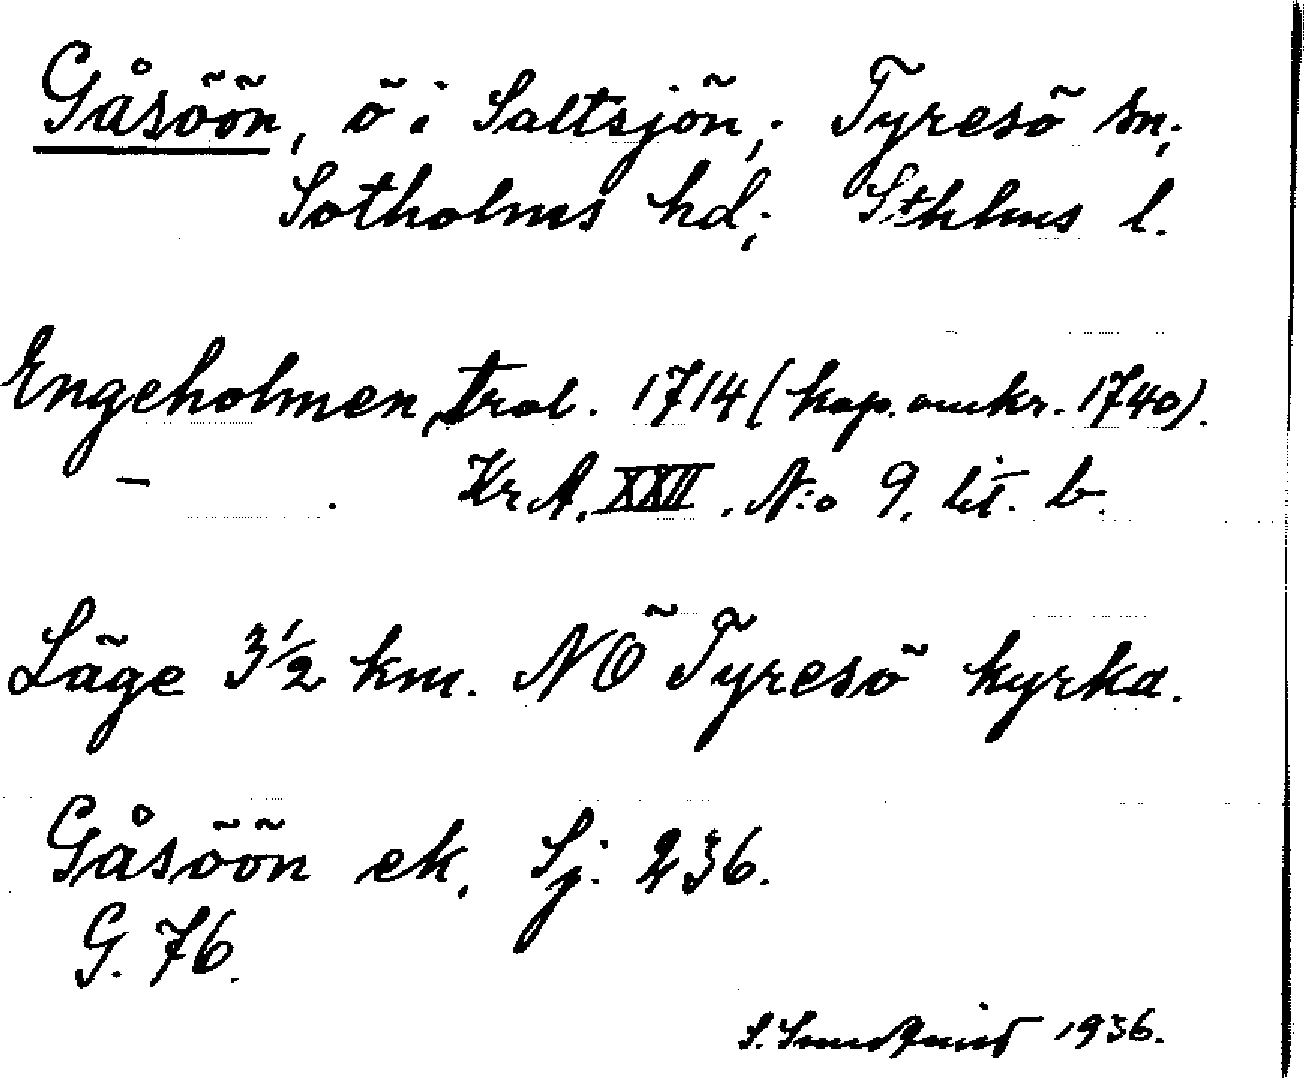 Gåsöön, ö i Saltsjön; Tyresö sn;
Sotholms hd; Sthlms l.
Engeholmen, trol. 1714 (kop. omkr. 1740).
— . KrA. XXII. N:o 9. lit. b.
Läge 3 1/2 km. NÖ Tyresö kyrka.
Gåsöön ek. Sj. 236.
G. 76.
S. Sundqvist 1936.